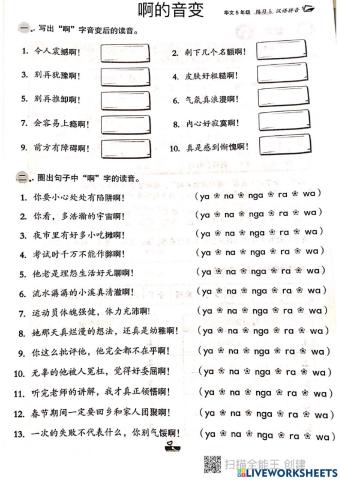 啊的音变
华文5年级 练习5 汉语拼音
一、写出"啊"字音变后的读音。
1. 令人震撼啊!
2. 剩下几个名额啊!
3. 别再犹豫啊!
4. 皮肤好粗糙啊!
5. 别再推卸啊!
6. 气氛真浪漫啊!
7. 会容易上瘾啊!
8. 内心好寂寞啊!
9. 前方有障碍啊!
10. 真是感到惭愧啊!
二、圈出句子中"啊"字的读音。
1. 你要小心处处有陷阱啊! (ya ❀ na ❀ nga ❀ ra ❀ wa)
2. 你看,多浩瀚的宇宙啊! (ya ❀ na ❀ nga ❀ ra ❀ wa)
3. 夜市里有好多小吃摊啊! (ya ❀ na ❀ nga ❀ ra ❀ wa)
4. 考试时千万不能作弊啊! (ya ❀ na ❀ nga ❀ ra ❀ wa)
5. 他老是埋怨生活好无聊啊! (ya ❀ na ❀ nga ❀ ra ❀ wa)
6. 流水潺潺的小溪真清澈啊! (ya ❀ na ❀ nga ❀ ra ❀ wa)
7. 运动员体魄强健,体力充沛啊! (ya ❀ na ❀ nga ❀ ra ❀ wa)
8. 她那天真烂漫的想法,还真是幼稚啊! (ya ❀ na ❀ nga ❀ ra ❀ wa)
9. 你这么批评他,他完全都不在乎啊! (ya ❀ na ❀ nga ❀ ra ❀ wa)
10. 无辜的他被人冤枉,觉得好委屈啊! (ya ❀ na ❀ nga ❀ ra ❀ wa)
11. 听完老师的讲解,我才真正领悟啊! (ya ❀ na ❀ nga ❀ ra ❀ wa)
12. 春节期间一定要回乡和家人团聚啊! (ya ❀ na ❀ nga ❀ ra ❀ wa)
13. 一次的失败不代表什么,你别气馁啊! (ya ❀ na ❀ nga ❀ ra ❀ wa)
扫描全能王 创建
LIVEWORKSHEETS